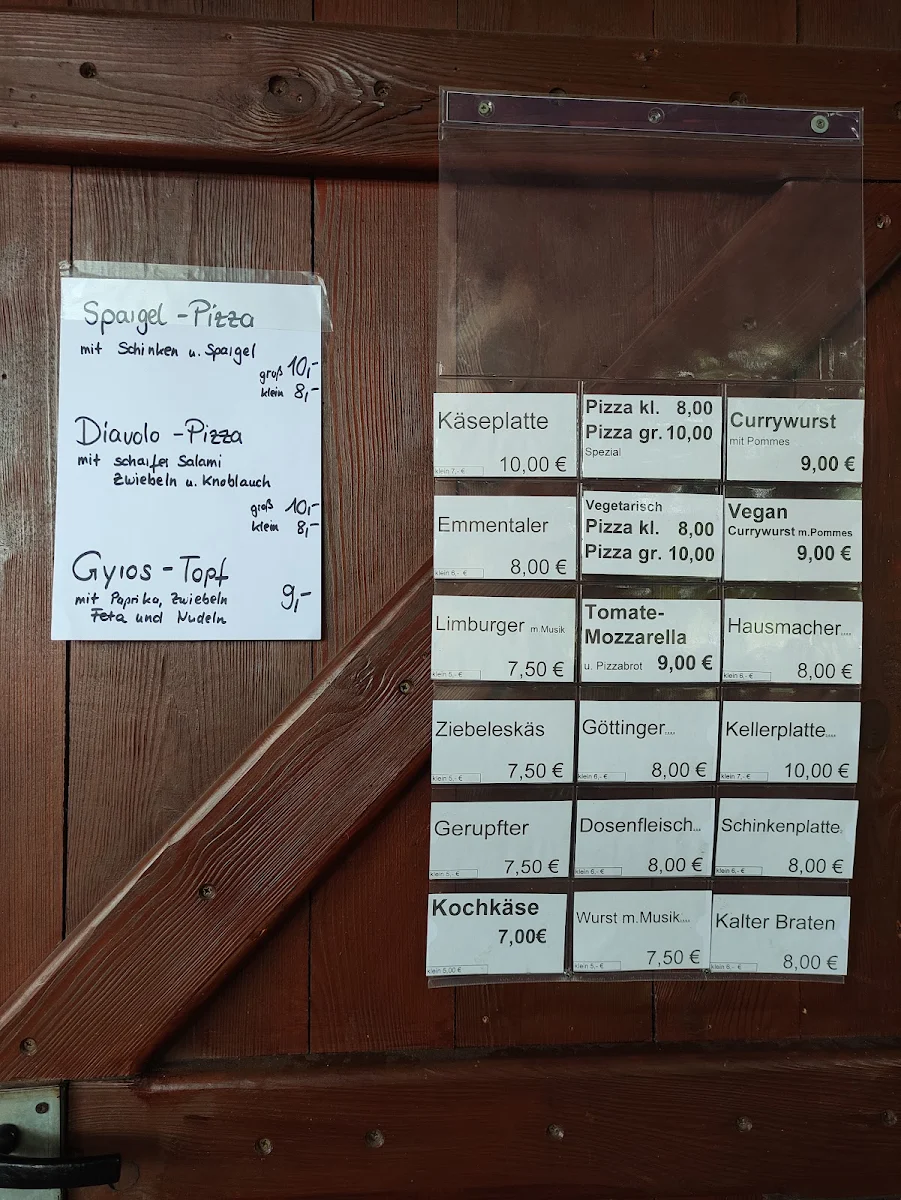 Spargel - Pizza
mit Schinken u. Spargel
groß 10,-
klein 8,-
Diavolo - Pizza
mit scharfer Salami
Zwiebeln u. Knoblauch
groß 10,-
klein 8,-
Gyros - Topf
mit Paprika, Zwiebeln
Feta und Nudeln
9,-
Käseplatte
klein 7,- €
10,00 €
Pizza kl. 8,00
Pizza gr. 10,00
Spezial
Currywurst
mit Pommes
9,00 €
Emmentaler
klein 6,- €
8,00 €
Vegetarisch
Pizza kl. 8,00
Pizza gr. 10,00
Vegan
Currywurst m.Pommes
9,00 €
Limburger m Musik
klein 5,- €
7,50 €
Tomate-
Mozzarella
u. Pizzabrot 9,00 €
Hausmacher....
klein 6,- €
8,00 €
Ziebeleskäs
klein 5,- €
7,50 €
Göttinger....
klein 6,- €
8,00 €
Kellerplatte....
klein 7,- €
10,00 €
Gerupfter
klein 5,- €
7,50 €
Dosenfleisch...
klein 6,- €
8,00 €
Schinkenplatte
klein 6,- €
8,00 €
Kochkäse
7,00€
klein 5,00 €
Wurst m.Musik....
klein 5,- €
7,50 €
Kalter Braten
klein 6,- €
8,00 €